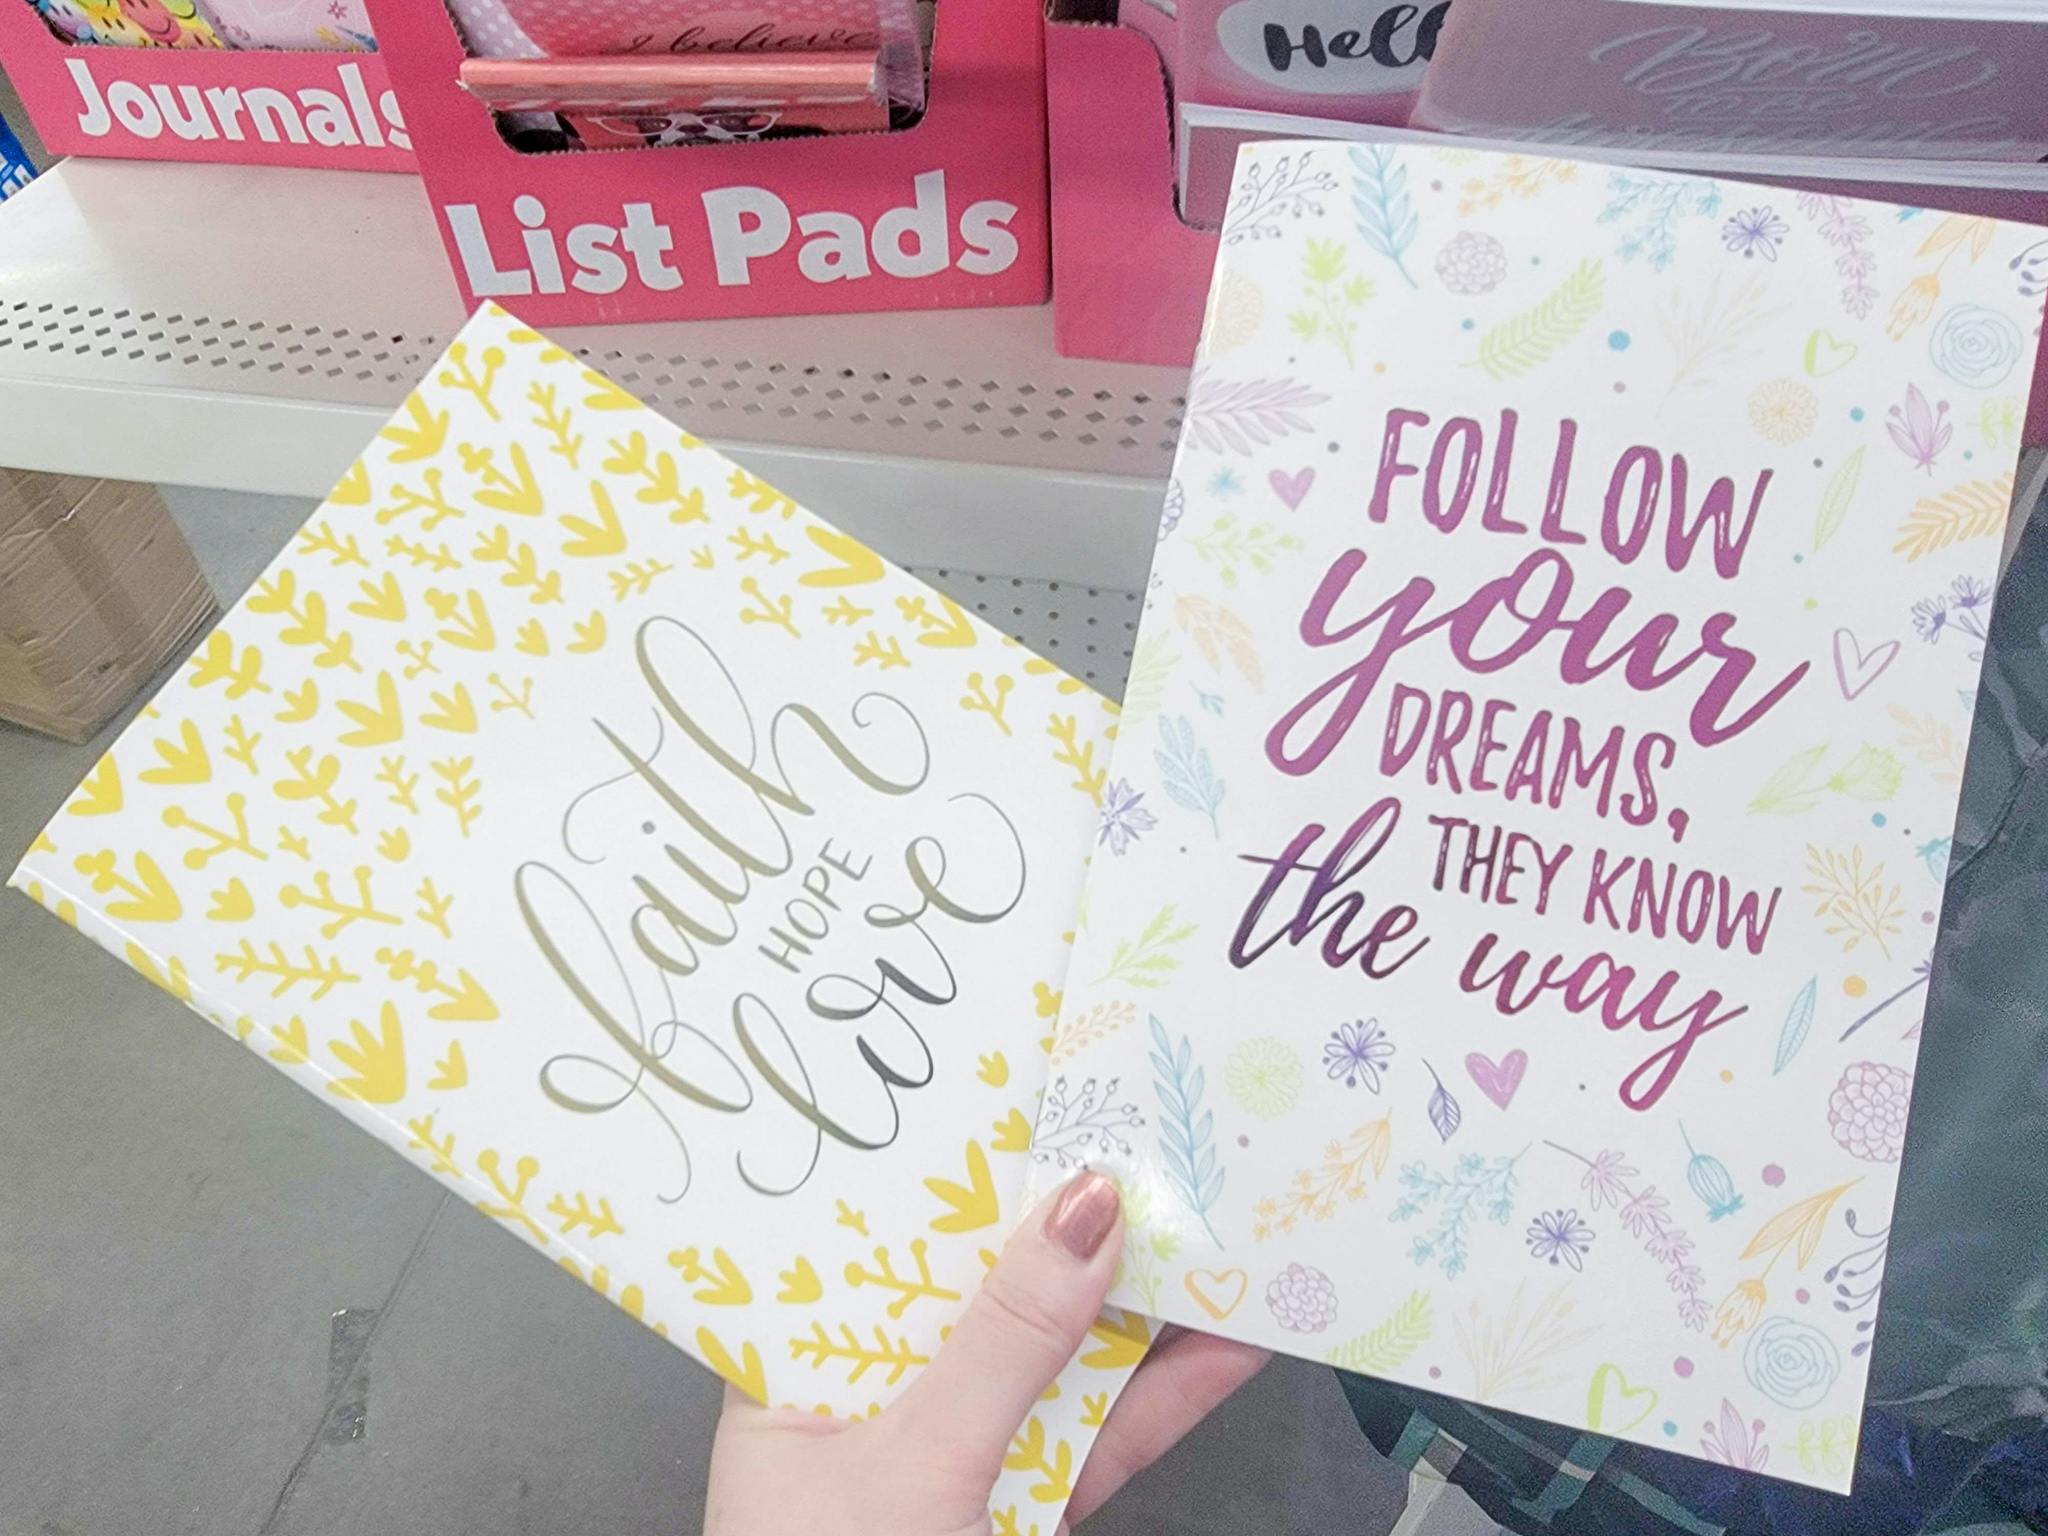 Journals
I believe
List Pads
Hell
Born
TO BE
faith
HOPE
love
FOLLOW
your
DREAMS,
THEY KNOW
the way